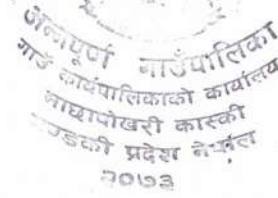 अन्नपूर्ण गाउँपालिका
गाउँ कार्यपालिकाको कार्यालय
माछापोखरी कास्की
गण्डकी प्रदेश नेपाल
२०७३